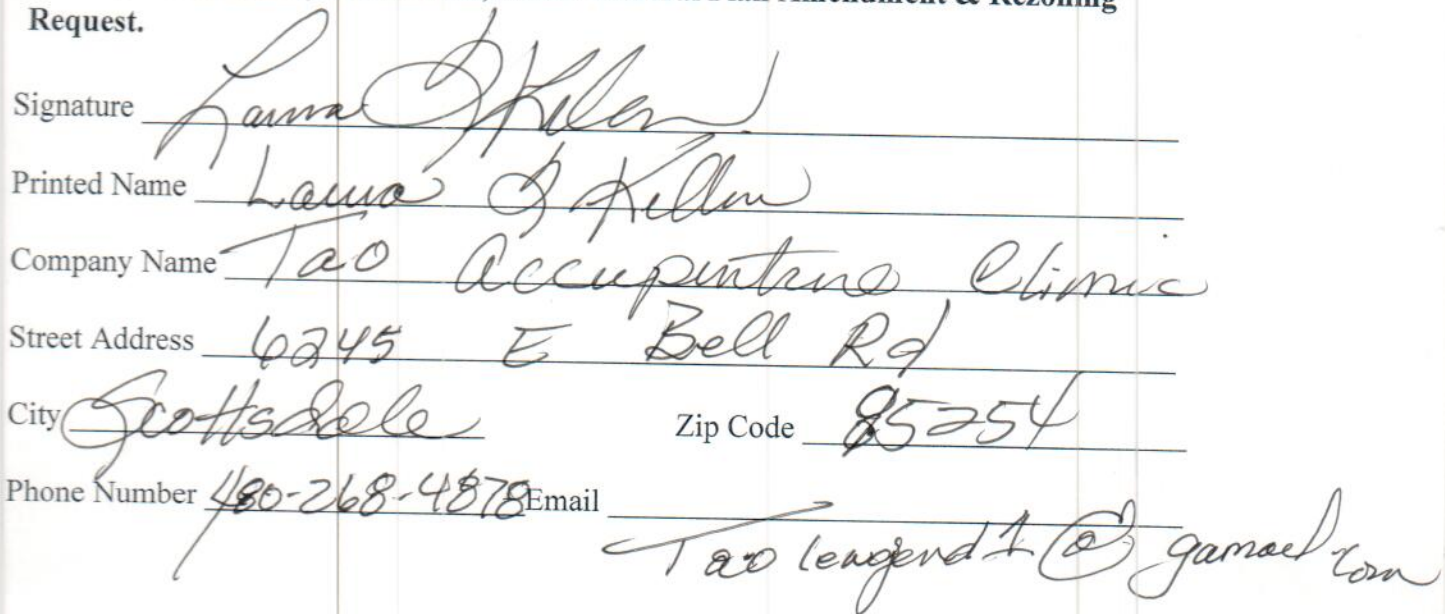 Amendment & Rezoning
Request.
Signature Laura J Killen
Printed Name Laura J Killen
Company Name Tao Accupinture Clinic
Street Address 6245 E Bell Rd
City Scottsdale Zip Code 85254
Phone Number 480-268-4878 Email
Tao lengend1@gamael.com